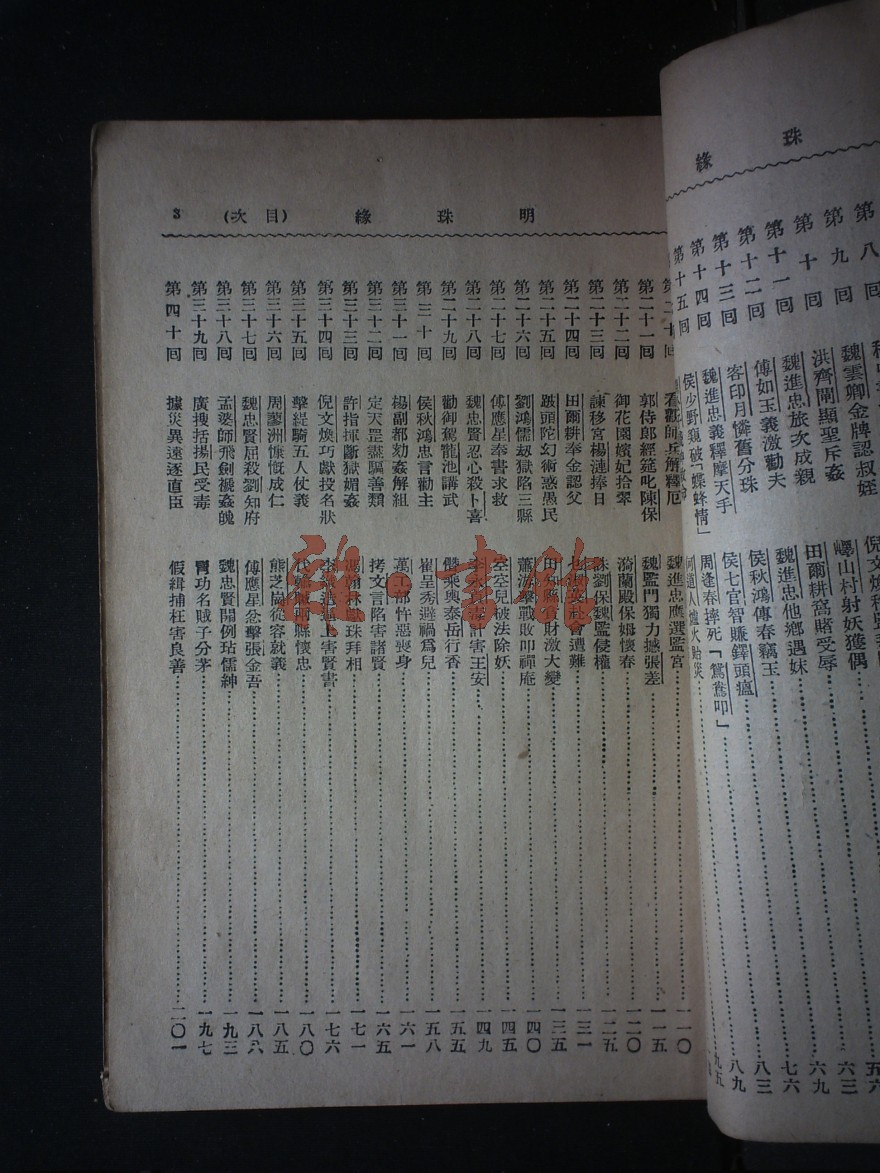 緣　珠
第八回
第九回　魏雲卿金牌認叔姪　六三
第十回　洪齊閘顯聖斥姦　田爾耕窩賭受辱　六九
魏進忠旅次成親　魏進忠他鄉遇妹　七六
第十一回　傅如玉義激勸夫　侯秋鴻傳春竊玉　八三
第十二回　客印月憐舊分珠　侯七官智賺鐸頭瘟　八九
第十三回　魏進忠義釋摩天手　周逢春摔死「鴛鴦叩」　九五
第十四回　侯少野窺破「蝶蜂情」
第十五回
明珠緣　（目次）　3
第二十回　魏進忠應選監宮　一一〇
第二十一回　郭侍郎經筵叱陳保　魏監門獨力撼張差　一一五
第二十二回　御花園嬪妃拾翠　漪蘭殿保姆懷春　一二〇
第二十三回　諫移宮楊漣捧日　誅劉保魏監侵權　一二五
第二十四回　田爾耕奉金認父　社會遭難　一三一
第二十五回　跛頭陀幻術惑愚民　田知縣貪財激大變　一三五
第二十六回　劉鴻儒刼獄陷三縣　蕭游擊戰敗叩禪庵　一四〇
第二十七回　傅應星奉書求救　空空兒破法除妖　一四五
第二十八回　魏忠賢忍心殺卜喜　李永貞毒計害王安　一四九
第二十九回　勸御駕龍池講武　僭乘輿泰岳行香　一五五
第三十回　侯秋鴻忠言勸主　崔呈秀避禍爲兒　一五八
第三十一回　楊副都劾姦解組　萬工部忤惡喪身　一六一
第三十二回　定天罡盡驅善類　拷文言陷害諸賢　一六五
第三十三回　許指揮斷獄媚姦　馮翰林獻珠拜相　一七一
第三十四回　倪文煥巧獻投名狀　李永貞進上害賢書　一七六
第三十五回　擊緹騎五人仗義　代輸贓兩縣懷忠　一八〇
第三十六回　周蓼洲慷慨成仁　熊芝岡從容就義　一八五
第三十七回　魏忠賢屈殺劉知府　傅應星忿擊張金吾　一八八
第三十八回　孟婆師飛劍褫姦魄　魏忠賢開例玷儒紳　一九三
第三十九回　廣搜括揚民受毒　冐功名賊子分茅　一九七
第四十回　據災異遠逐直臣　假緝捕枉害良善　二〇一